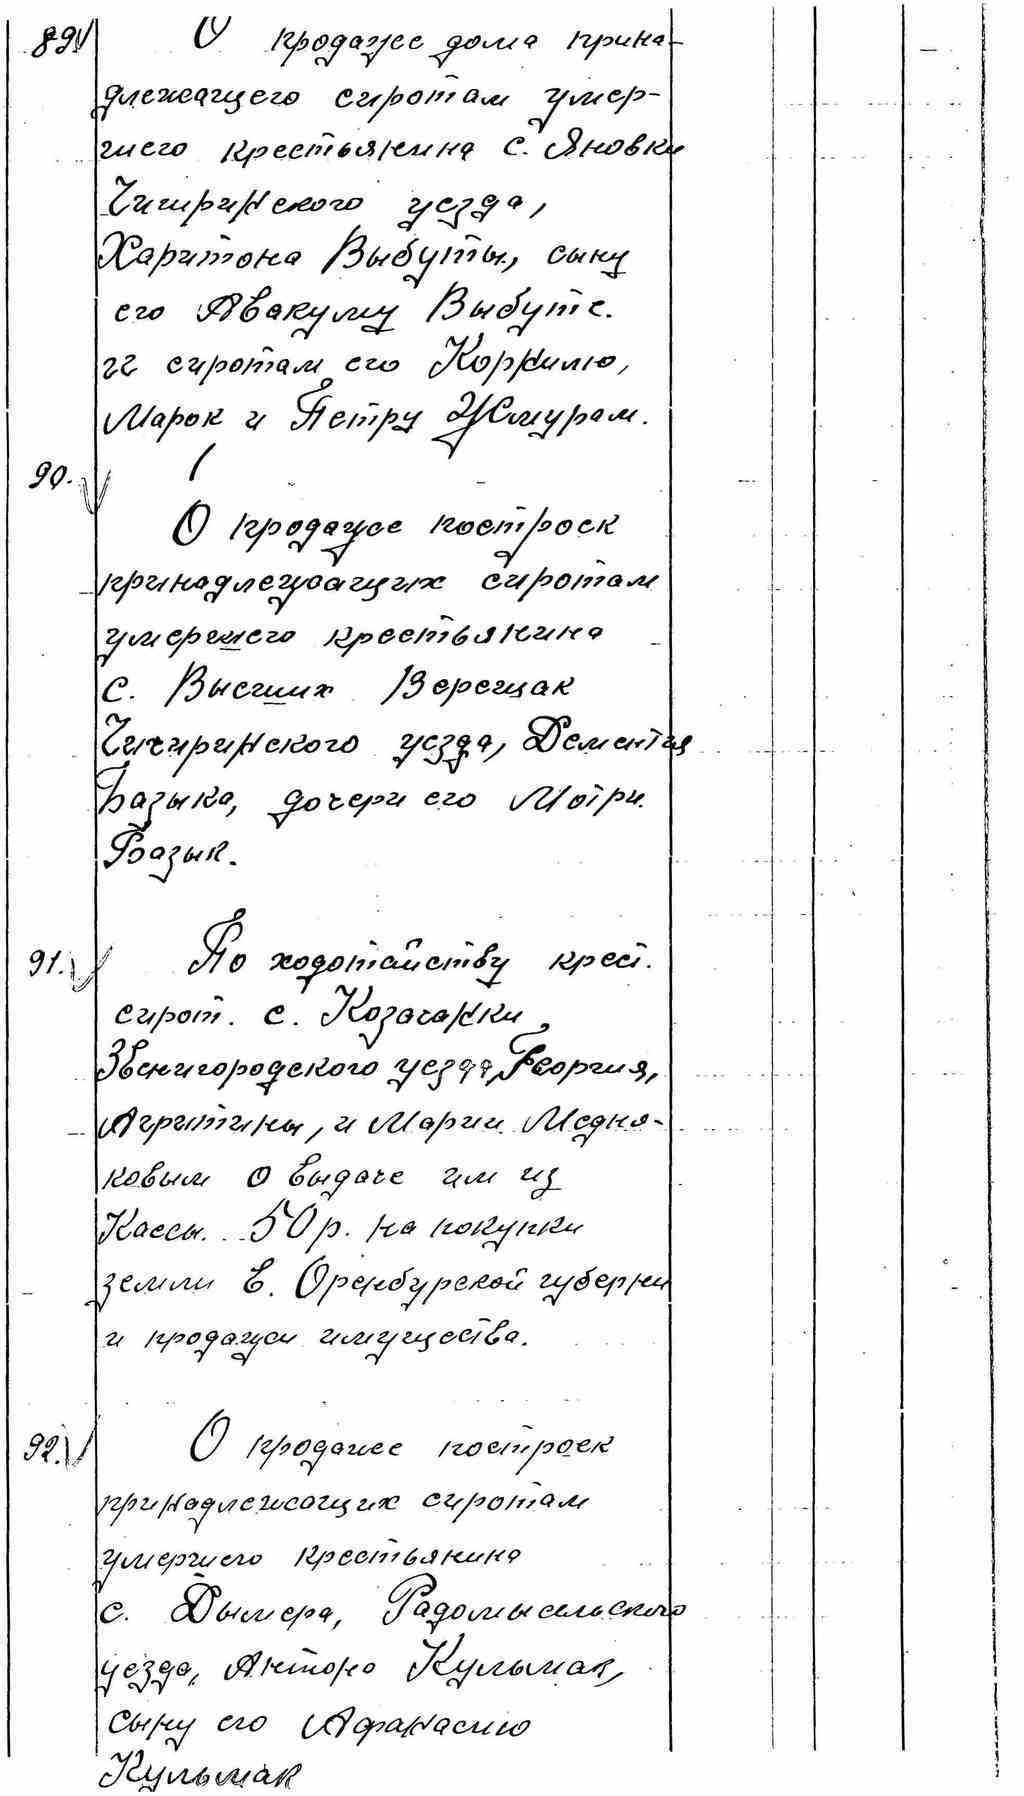 89. О продаже дома прина-
длежащего сиротам умер-
шего крестьянина с. Яновки
Чигиринского уезда,
Харитона Выбуты, сыну
его Авакуму Выбуте.
и сиротам его Корнилю,
Марок и Петру Жмурам.
90.
О продаже построек
принадлежащих сиротам
умершего крестьянина
с. Высших Верещак
Чигиринского уезда, Дементия
Базыка, дочери его Мотри
Базык.
91. По ходотайству крест.
сирот. с. Козачанки
Звенигородского уезда, Георгия,
Агрипины, и Марии Медня-
ковым о выдаче им из
Кассы. 50 р. на покупки
земли в. Оренбурской губернии
и продажи имущества.
92. О продаже построек
принадлежащих сиротам
умершего крестьянина
с. Дымера, Радомысельского
уезда, Антона Кульмак,
сыну его Афанасию
Кульмак